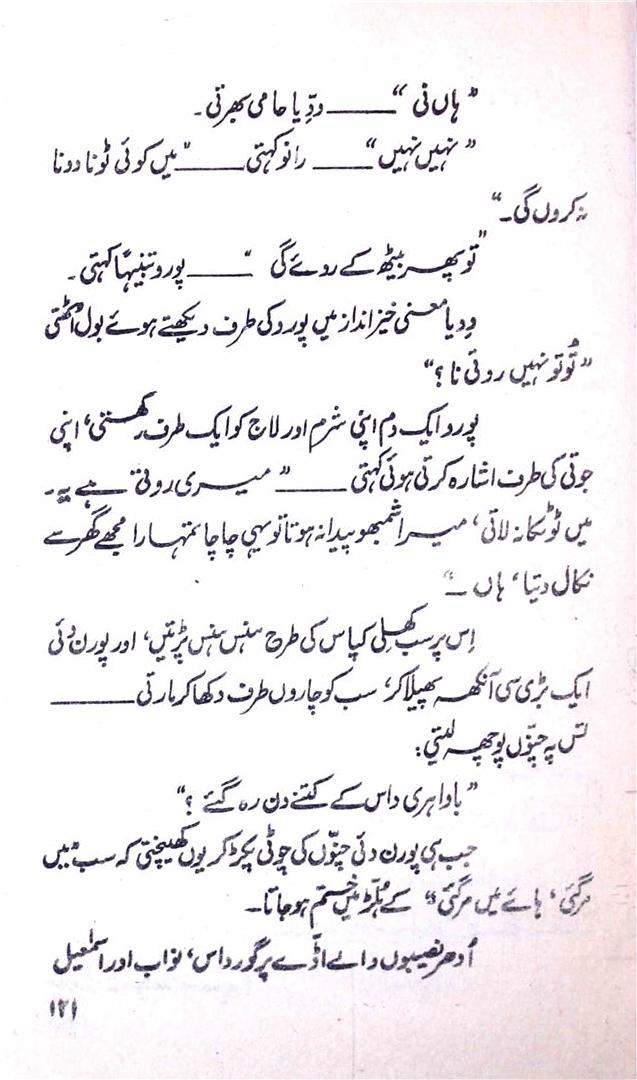 "ہاں نی" ـــــــ ودّیا حامی بھرتی۔
"نہیں نہیں" ـــــــ رانو کہتی ـــــــ "میں کوئی ٹونا دونا
نہ کروں گی۔"
"تو پھر بیٹھ کے روئے گی" ـــــــ پورو تنبیہاً کہتی۔
ودیا معنی خیز انداز میں پورو کی طرف دیکھتے ہوئے بول اٹھتی
"تُو تو نہیں روئی نا؟"
پورو ایک دم اپنی شرم اور لاج کو ایک طرف رکھتی، اپنی
جوتی کی طرف اشارہ کرتی ہوئی کہتی ـــــــ "میری روتی ہے یہ۔
میں ٹوٹکا نہ لاتی، میرا شمبھو پیدا نہ ہوتا تو یہی چاچا تمہارا مجھے گھر سے
نکال دیتا، ہاں ـ"
اِس پر سب کھِلی کپاس کی طرح ہنس ہنس پڑتیں، اور پورن دئی
ایک بڑی سی آنکھ پھیلا کر، سب کو چاروں طرف دکھا کر مارتی ـــــــ
تس پہ چنّوں پوچھ لیتی:
"باوا ہری داس کے کتنے دن رہ گئے؟"
جب ہی پورن دئی چنّوں کی چوٹی پکڑ کر یوں کھینچتی کہ سب "میں
مر گئی، ہائے میں مر گئی" کے ہُلّڑ میں ختم ہو جاتا۔
اُدھر نصیبوں والے اڈّے پر گورداس، نواب اور اسمٰعیل
۱۲۱